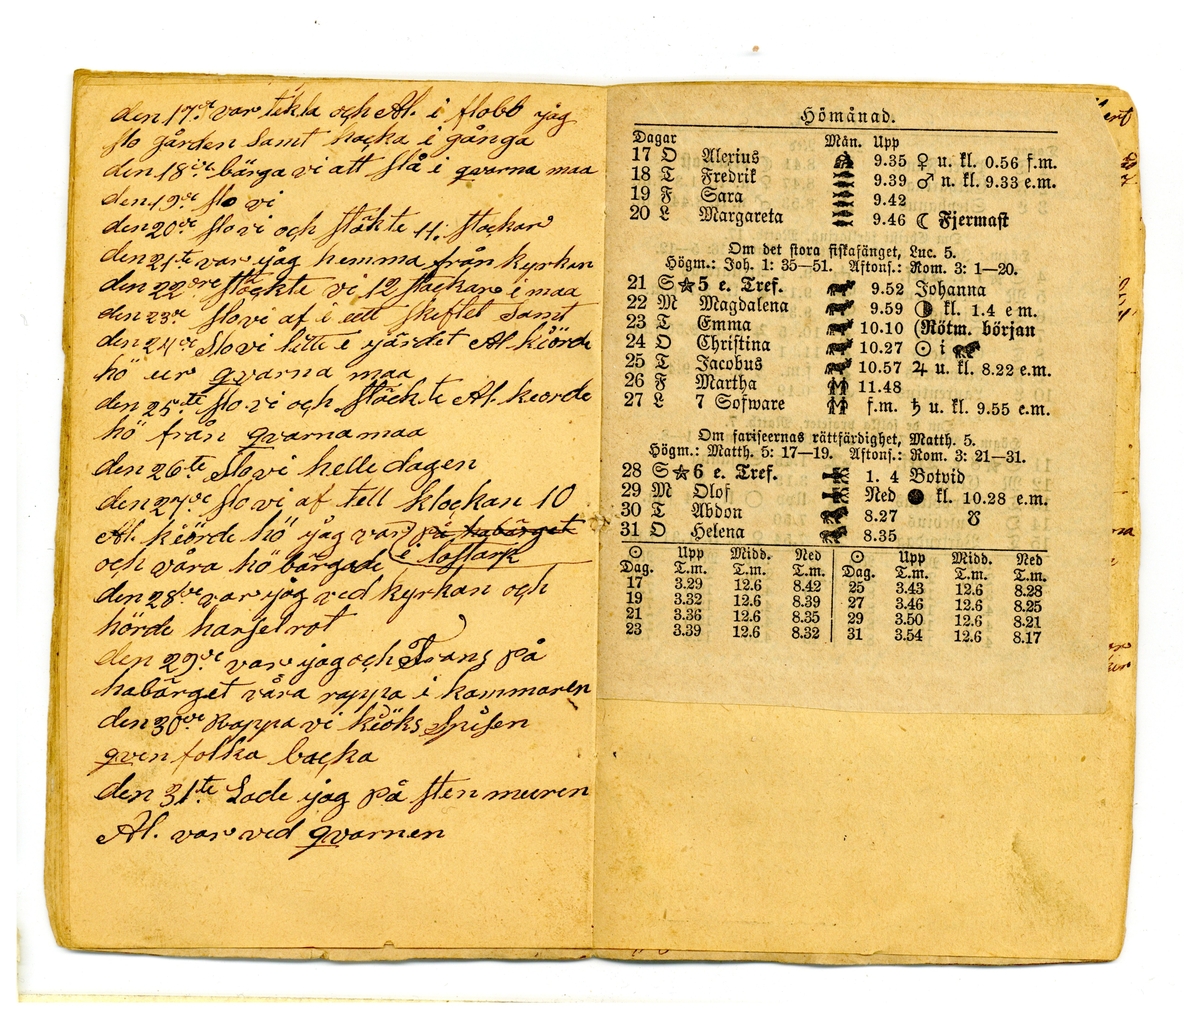 den 17de var tekla och Al. i slobb jag
slo gården samt hacka i gånga
den 18de bärga vi att slå i qvarna maa
den 19de slo vi
den 20de slo vi och stäkte 11. stackar
den 21te var jag hemma från kyrkan
den 22dre stäckte vi 12 stackar i maa
den 23de slo vi af i ett skiftet samt
den 24de Slo vi litte i järdet Al. kiörde
hö ur qvarna maa
den 25te slo vi och stäckte Al. keorde
hö från qvarnamaa
den 26te Slo vi helle dagen
den 27de slo vi af tell klockan 10
Al. kiörde hö jag var på habärget
och våra hö bärgade i
den 28de var jag ved kyrkan och
hörde
den 29de var jag och Frans på
habärget våra rappa i kammaren
den 30de Rappa vi kiöks Spisen
qvinfolka backa
den 31te Lade jag på sten muren
Al. var ved qvarnen
Hömånad.
Dagar Mån. Upp
17 O Alexius 9.35 ♀ u. kl. 0.56 f.m.
18 T Fredrik 9.39 ♂ n. kl. 9.33 e.m.
19 F Sara 9.42
20 L Margareta 9.46 ☾ Fjermast
Om det stora fiskafänget, Luc. 5.
Högm.: Joh. 1: 35—51. Aftons.: Rom. 3: 1—20.
21 S ☆ 5 e. Tref. 9.52 Johanna
22 M Magdalena 9.59 ◑ kl. 1.4 e m.
23 T Emma 10.10 (Rötm. början
24 O Christina 10.27 ☉ i
25 T Jacobus 10.57 ♃ u. kl. 8.22 e.m.
26 F Martha 11.48
27 L 7 Sofware f.m. ♄ u. kl. 9.55 e.m.
Om fariseernas rättfärdighet, Matth. 5.
Högm.: Matth. 5: 17—19. Aftons.: Rom. 3: 21—31.
28 S ☆ 6 e. Tref. 1. 4 Botvid
29 M Olof Ned ● kl. 10.28 e.m.
30 T Abdon 8.27 ☋
31 O Helena 8.35
☉ Upp Midd. Ned ☉ Upp Midd. Ned
Dag. T.m. T.m. T.m. Dag. T.m. T.m. T.m.
17 3.29 12.6 8.42 25 3.43 12.6 8.28
19 3.32 12.6 8.39 27 3.46 12.6 8.25
21 3.36 12.6 8.35 29 3.50 12.6 8.21
23 3.39 12.6 8.32 31 3.54 12.6 8.17